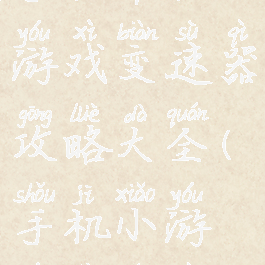 yóu xì biàn sù qì
游戏变速器
gōng lüè dà quán
攻略大全(
shǒu jī xiǎo yóu
手机小游